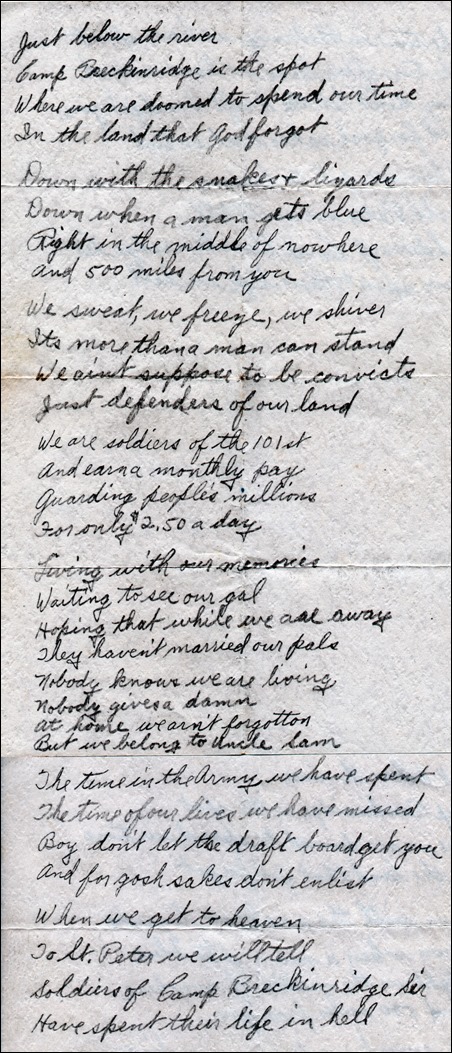 Just below the river
Camp Breckinridge is the spot
Where we are doomed to spend our time
In the land that God forgot
Down with the snakes + lizards
Down when a man gets blue
Right in the middle of nowhere
and 500 miles from you
We sweat, we freeze, we shiver
Its more than a man can stand
We ain't suppose to be convicts
Just defenders of our land
We are soldiers of the 101st
And earn a monthly pay
Guarding people's millions
For only $2.50 a day
Living with our memories
Waiting to see our gal
Hoping that while we are away
They haven't married our pals
Nobody knows we are living
Nobody gives a damn
At home we arn't forgotton
But we belong to Uncle Sam
The time in the Army we have spent
The time of our lives we have missed
Boy don't let the draft board get you
And for gosh sakes don't enlist
When we get to heaven
To St. Peter we will tell
Soldiers of Camp Breckinridge Sir
Have spent their life in hell